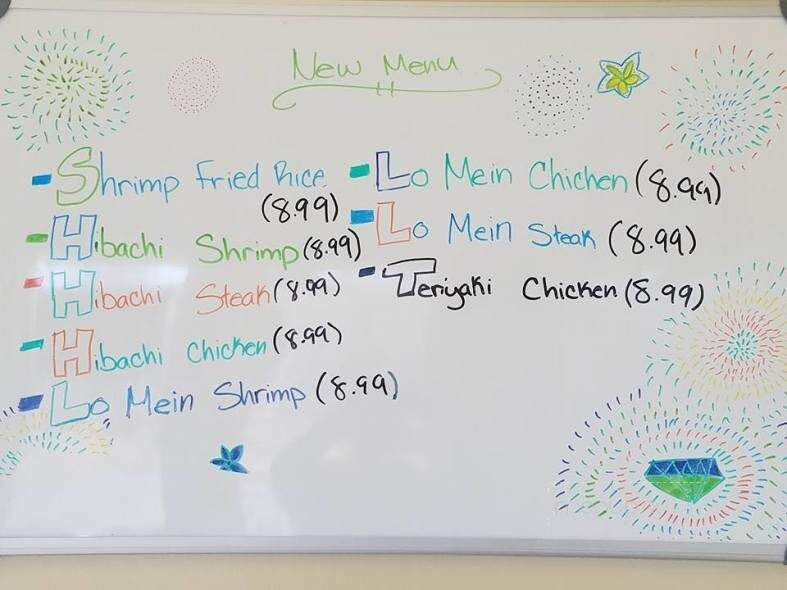 New Menu
- Shrimp Fried Rice
(8.99)
- Hibachi Shrimp (8.99)
- Hibachi Steak (8.99)
- Hibachi Chicken (8.99)
- Lo Mein Shrimp (8.99)
- Lo Mein Chicken (8.99)
- Lo Mein Steak (8.99)
- Teriyaki Chicken (8.99)